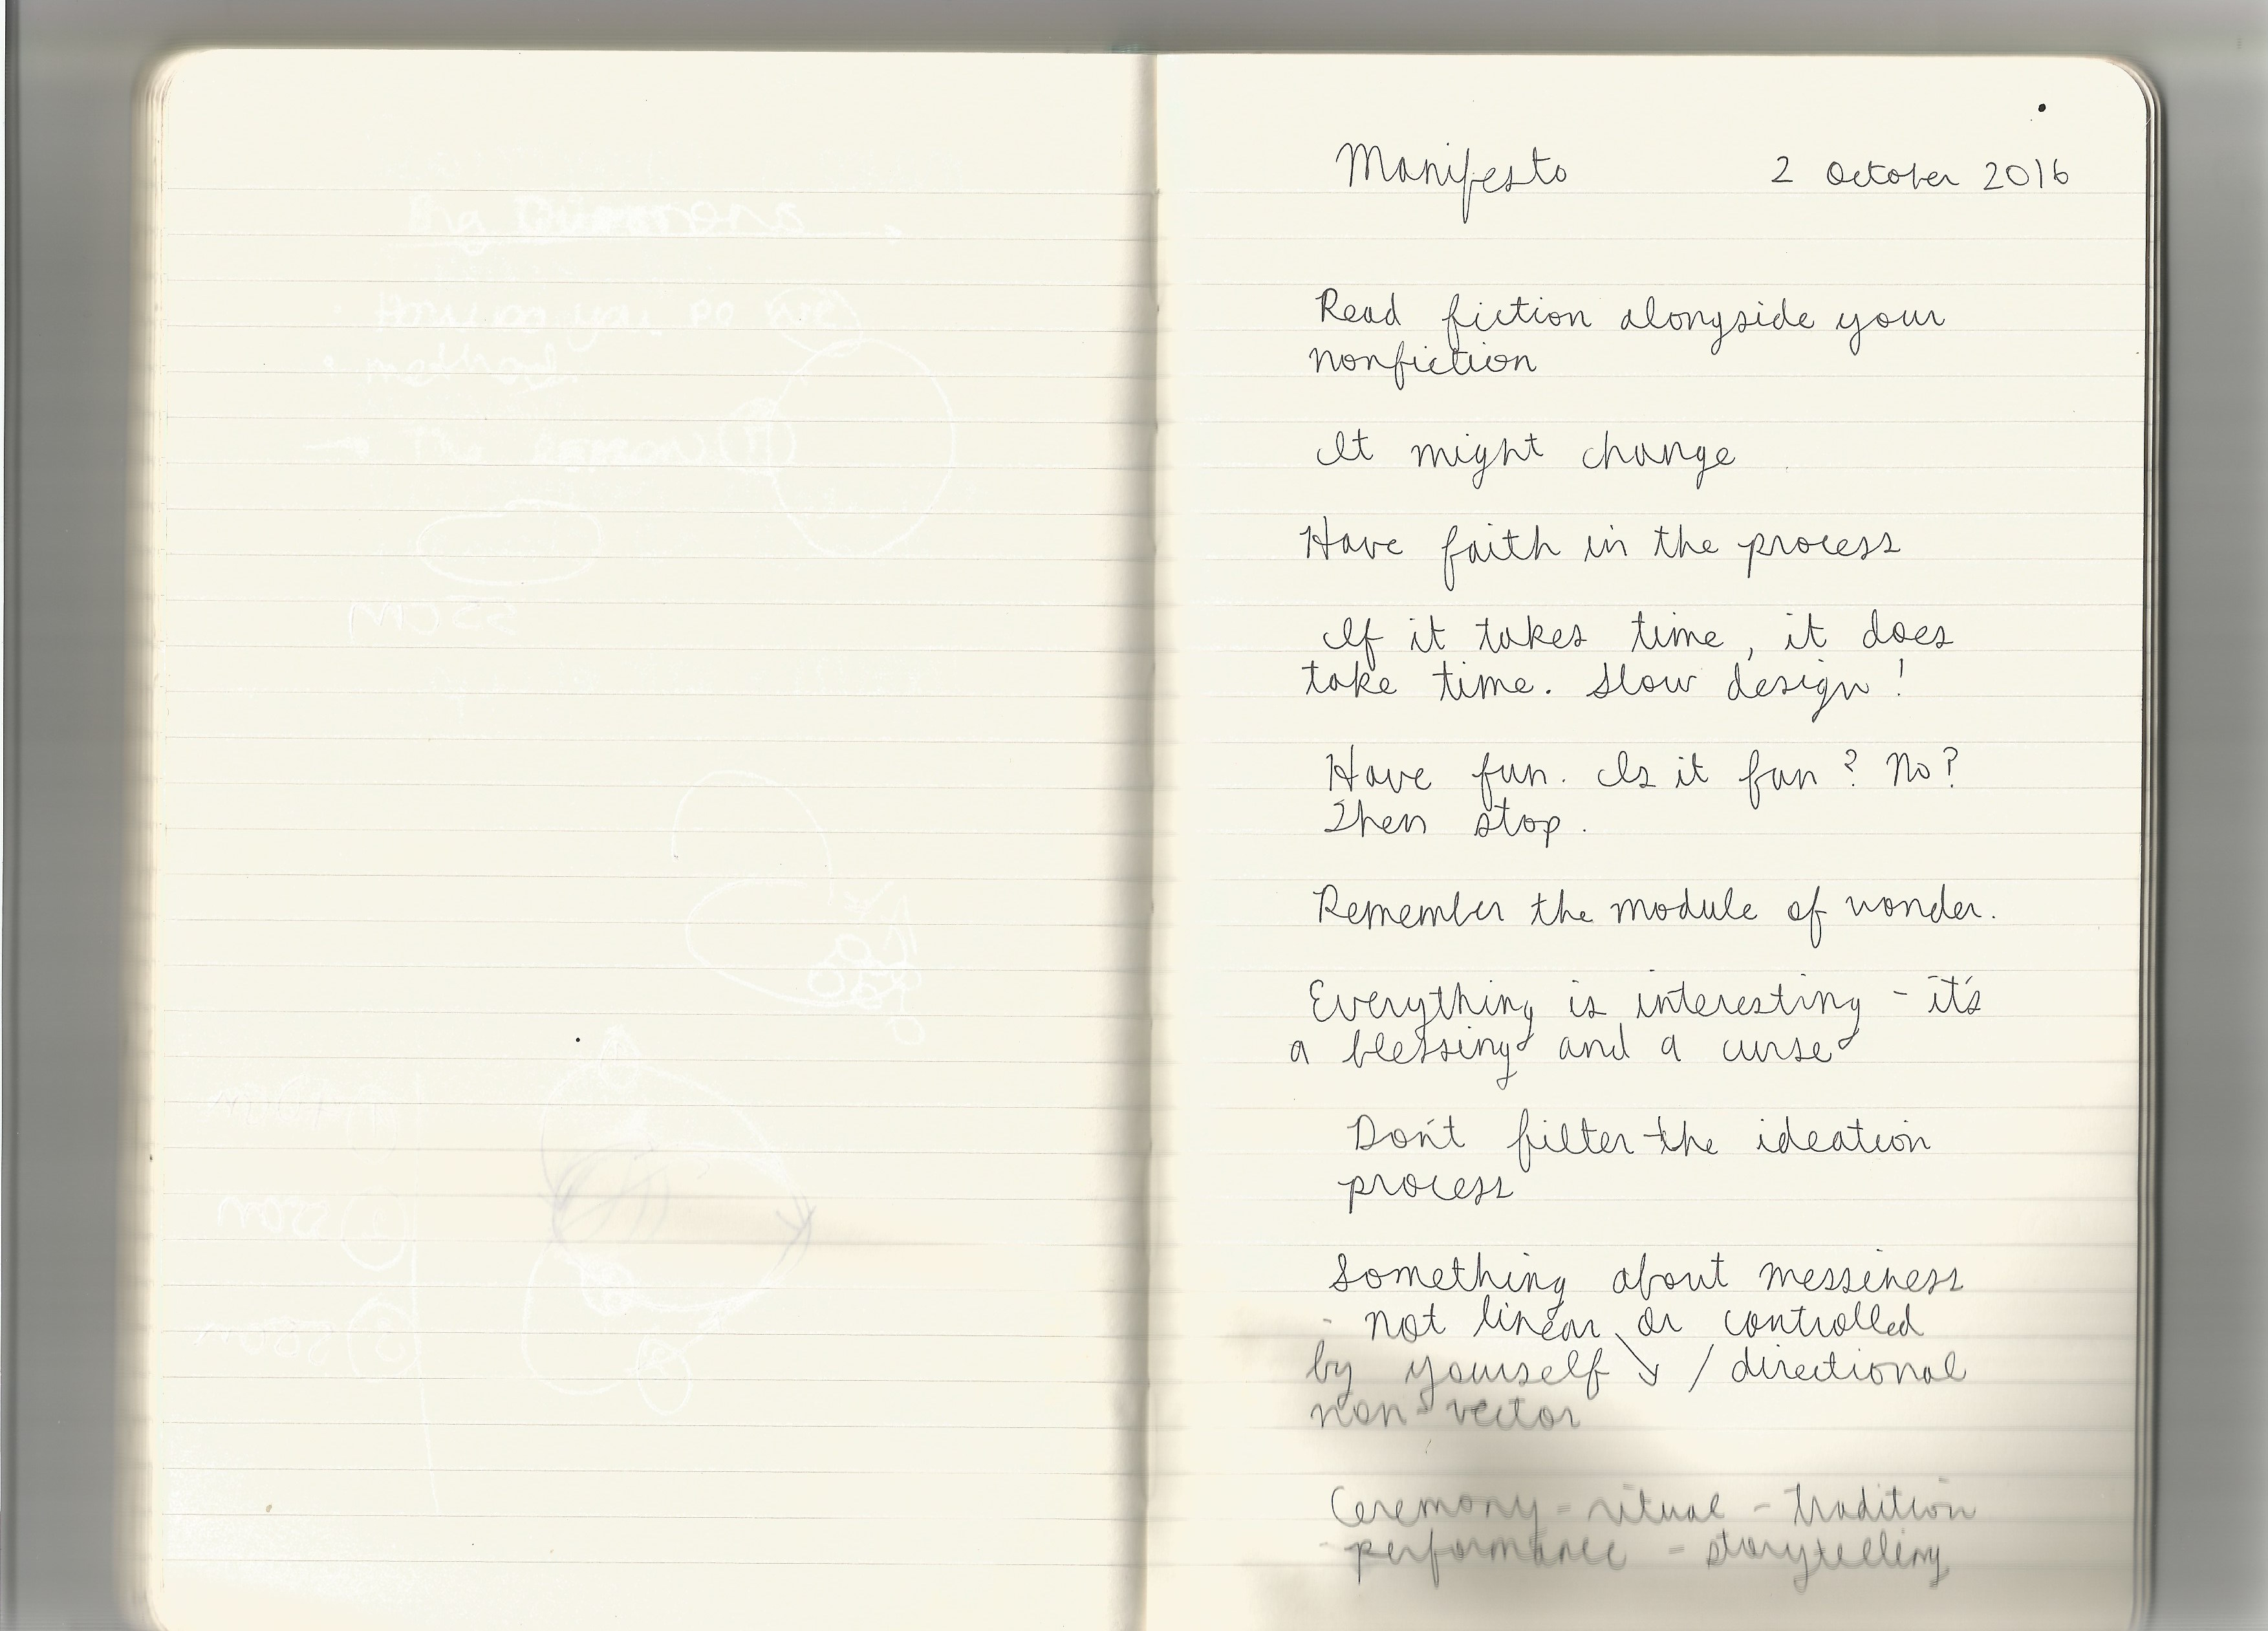 Manifesto 2 October 2016
Read fiction alongside your
nonfiction
It might change
Have faith in the process
If it takes time, it does
take time. Slow design!
Have fun. Is it fun? No?
Then stop.
Remember the module of wonder.
Everything is interesting - it's
a blessing and a curse
Don't filter the ideation
process
Something about messiness
- not linear or controlled
by yourself ↘ / directional
non-vector
Ceremony - ritual - tradition
- performance - storytelling